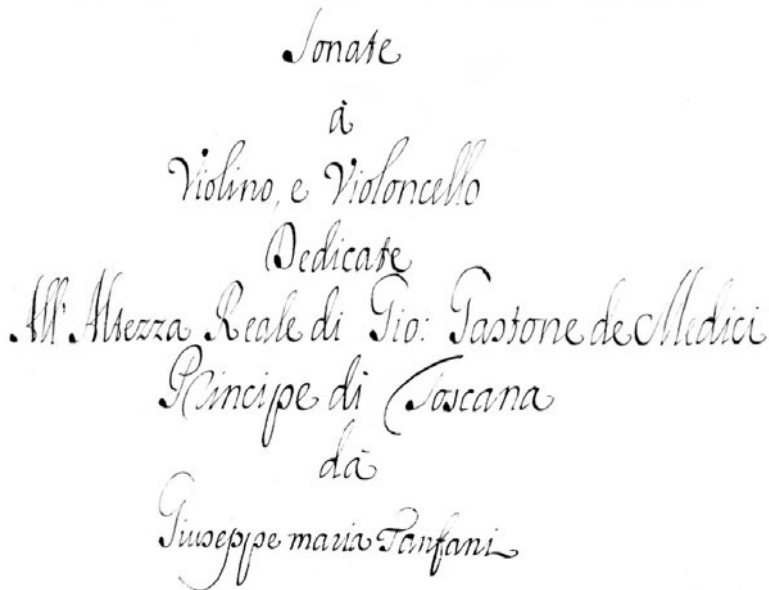 Sonate
à
Violino, e Violoncello
Dedicate
All' Altezza Reale di Gio: Gastone de Medici
Principe di Toscana
dà
Giuseppe maria Tanfani